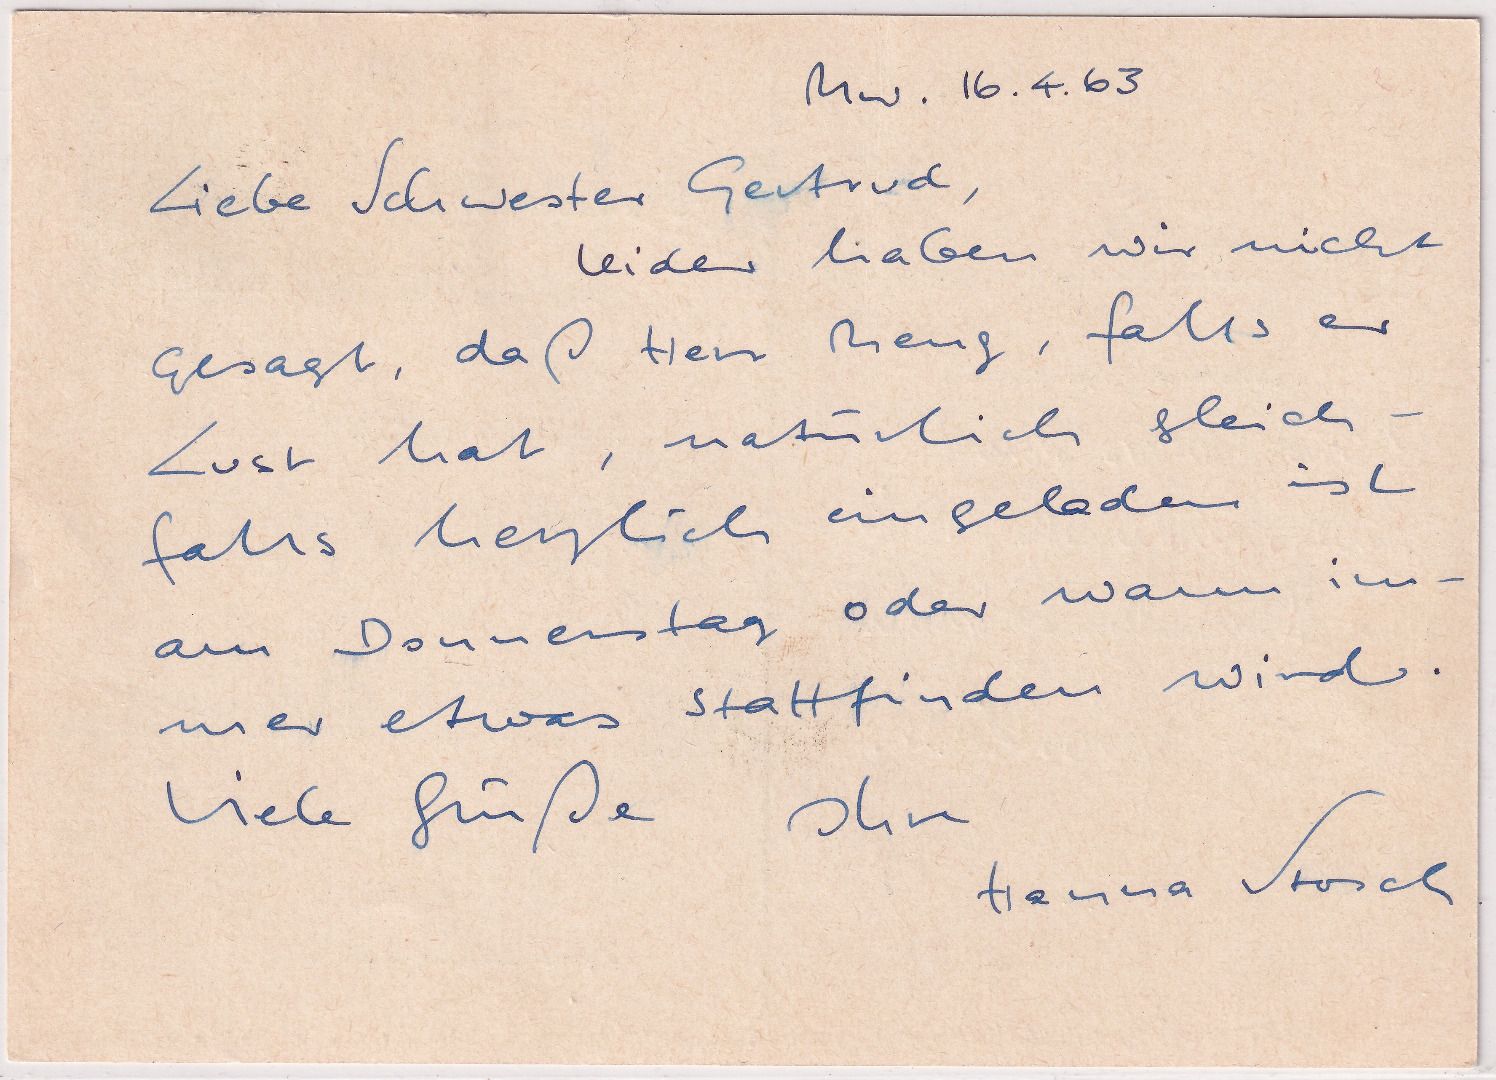 Mw. 16.4.63
Liebe Schwester Gertrud,
leider haben wir nicht
gesagt, daß Herr Meng, falls er
Lust hat, natürlich gleich-
falls herzlich eingeladen ist
am Donnerstag oder wann im-
mer etwas stattfinden wird.
Viele Grüße Ihre
Hanna Stosch